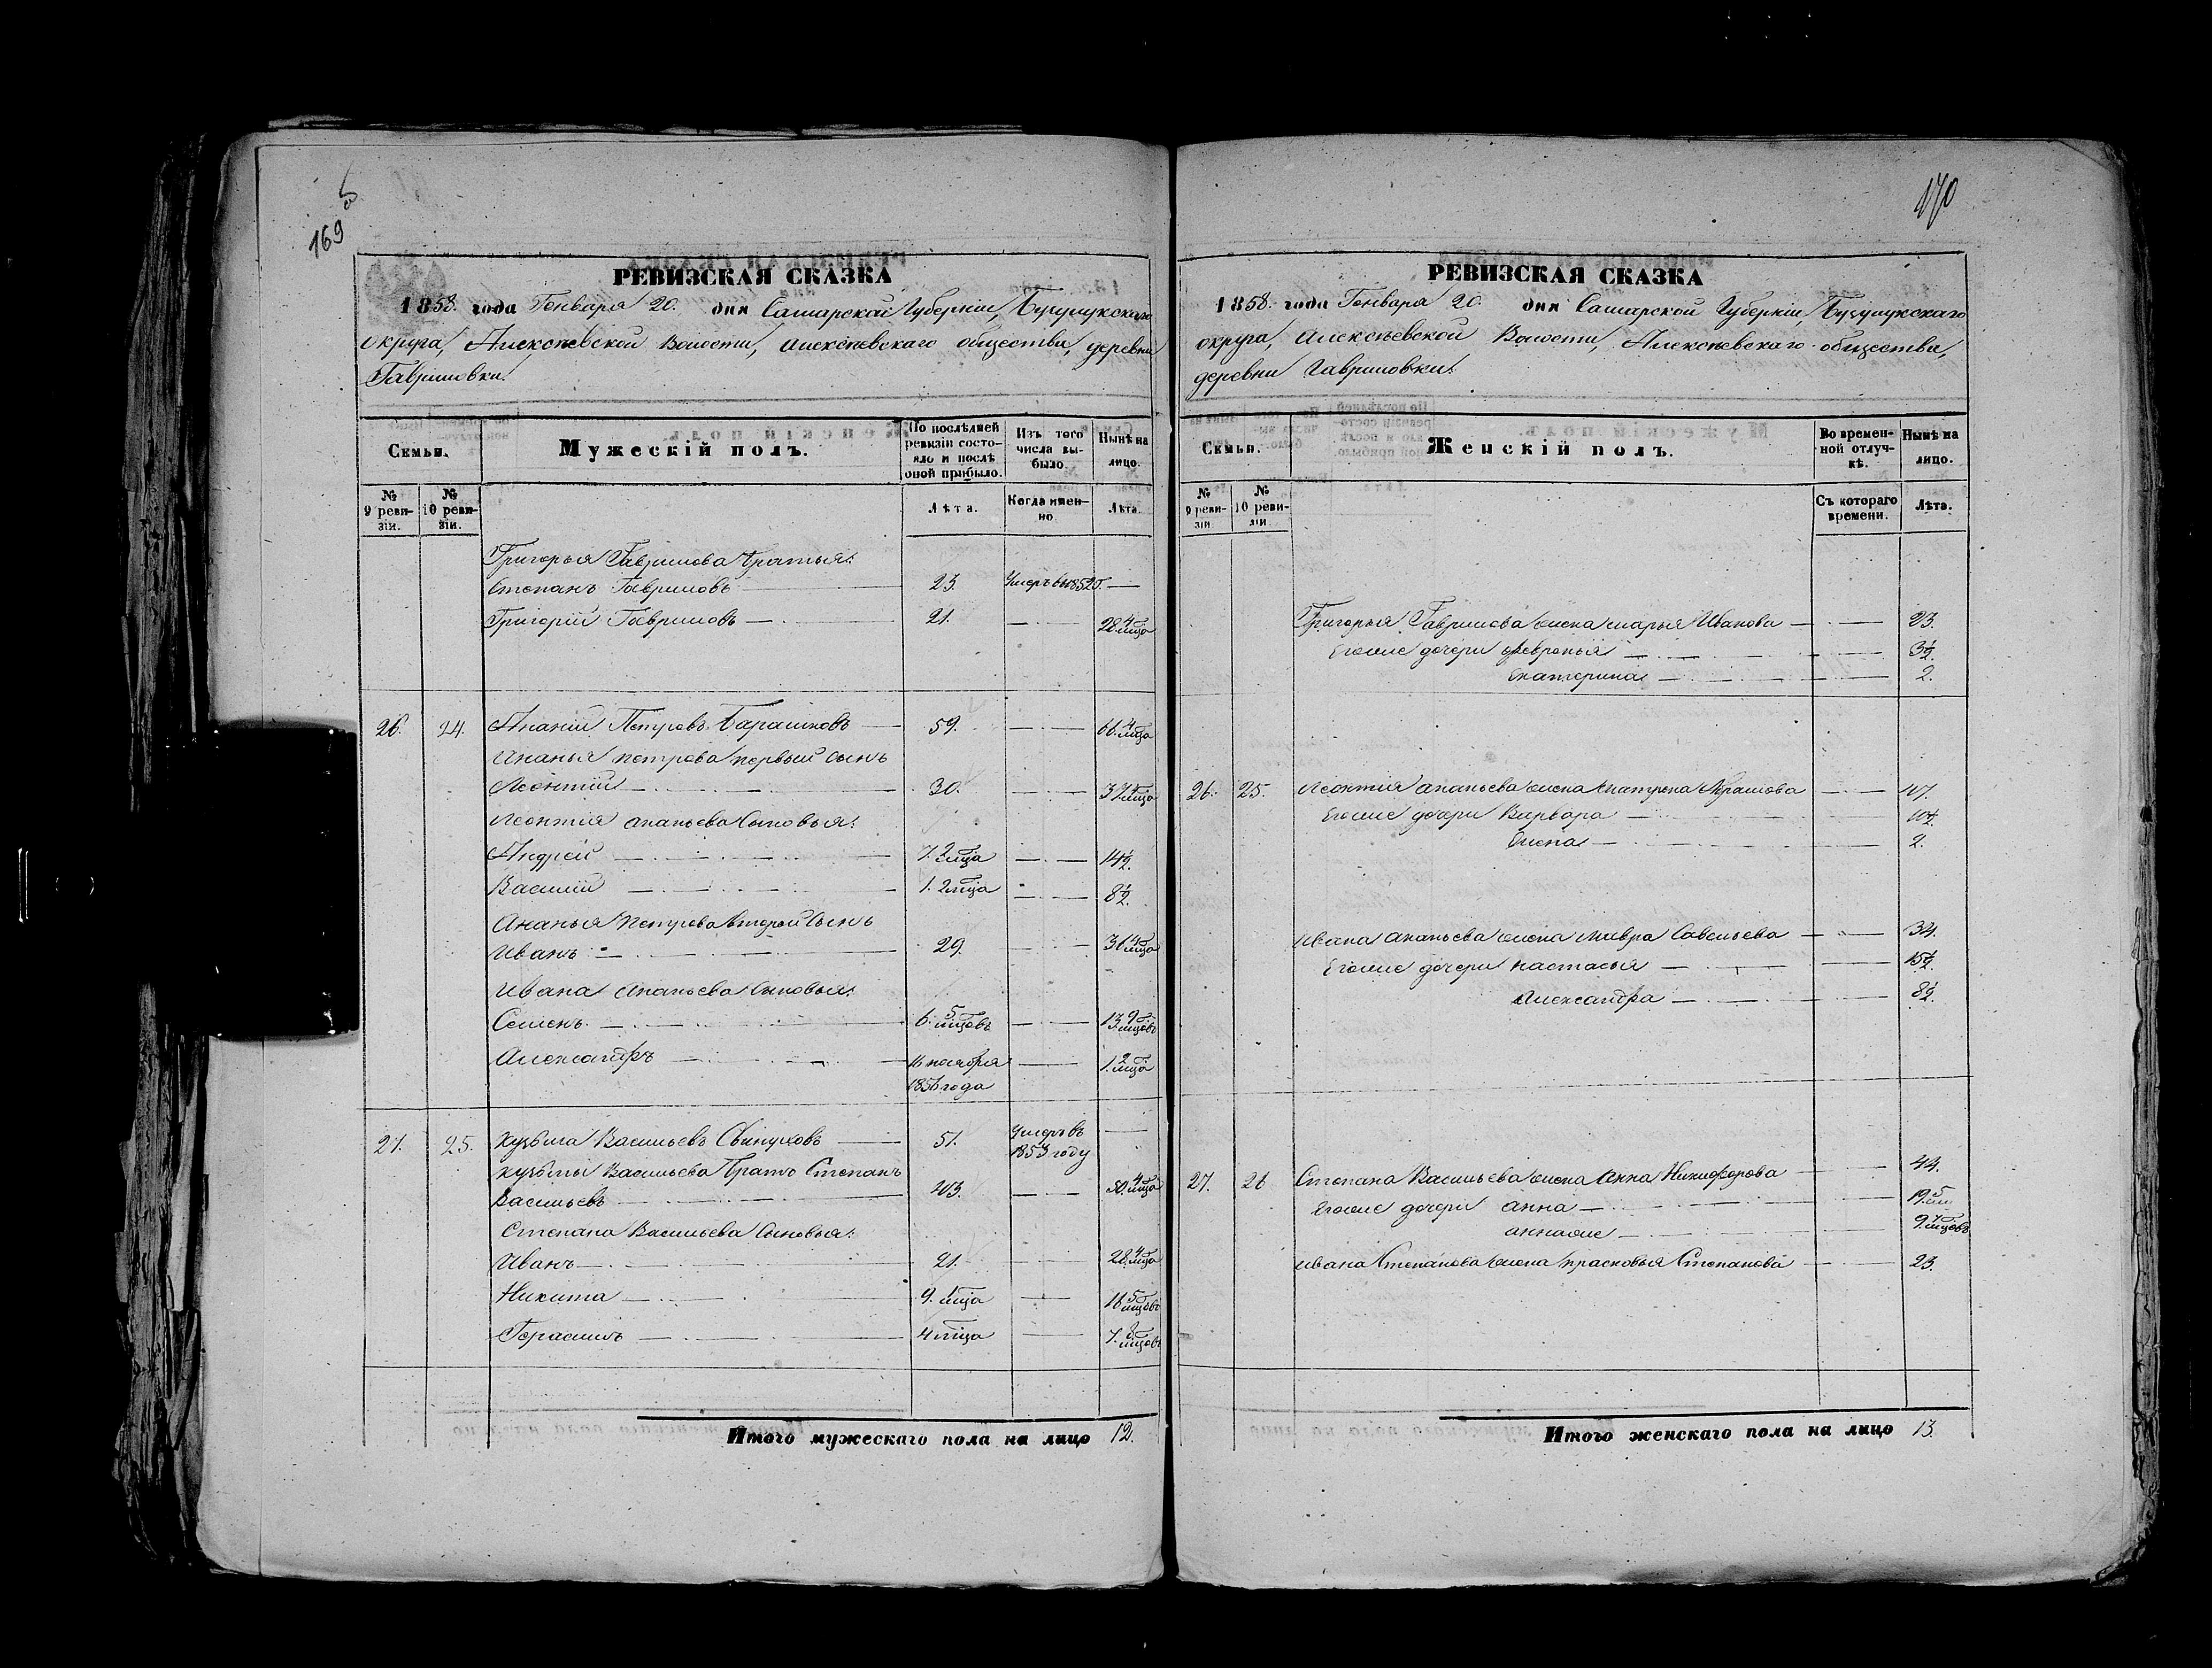 169
РЕВИЗСКАЯ СКАЗКА
1858. года Генваря 20. дня Самарской Губернiи, Бузулукскаго
округа, Алексѣевской Волости, Алексѣевскаго общества, деревни
Гавриловки.
Семьи.
Мужескій полъ.
По послѣдней ревизіи состояло и послѣ оной прибыло.
Изъ того числа выбыло.
Нынѣ на лицо.
№ 9 ревизіи.
№ 10 ревизіи.
Лѣта.
Когда именно
Лѣта.
Григорья Гаврилова братья:
Степанъ Гавриловъ 23. Умеръ въ 1852 г.
Григорій Гавриловъ 21. 28. 4 м-ца
26. 24. Ананій Петровъ Барашковъ 59. 66. 4 м-ца
Ананья Петрова первый сынъ
Леонтій 30. 37. 4 м-ца
Леонтія Ананьева сыновья:
Андрей 7. 2 м-ца 14 1/2.
Василій 1. 2 м-ца 8 1/2.
Ананья Петрова второй сынъ
Иванъ 29. 36. 4 м-ца
Ивана Ананьева сыновья:
Семенъ 6. 5 м-цовъ 13. 9 м-цовъ
Александръ 16 ноября 1. 2 м-ца
1856 года
27. 25. Кузьма Васильевъ 51. Умеръ въ
1853 году
Кузьмы Васильева братъ Степанъ
Васильевъ 43. 50. 4 м-ца
Степана Васильева сыновья:
Иванъ 21. 28. 4 м-ца
Никита 9. 1 м-ца 16. 5 м-цовъ
Герасимъ 4 м-ца 7. 8 м-цовъ
Итого мужескаго пола на лицо 12.
170
РЕВИЗСКАЯ СКАЗКА
1858. года Генваря 20. дня Самарской Губернiи, Бузулукскаго
округа, Алексѣевской Волости, Алексѣевскаго общества,
деревни Гавриловки.
Семьи.
Женскій полъ.
Во временной отлучкѣ.
Нынѣ на лицо.
№ 9 ревизіи.
№ 10 ревизіи.
Съ котораго времени.
Лѣта.
Григорья Гаврилова жена Марья Иванова 23.
Егоже дочери Февронья 3 1/2.
Екатерина 2.
26. 25. Леонтія Ананьева жена Матрена Абрамова
Егоже дочери Варвара
Елена 2.
Ивана Ананьева жена Мавра Савельева 34.
Егоже дочери Настасья 15 1/2.
Александра 8 1/2.
27. 26 Степана Васильева жена Анна Никифорова 44.
Егоже дочери Анна 19. 5 м-ц
Анна же 9. 4 м-цовъ
Ивана Степанова жена Прасковья Степанова 23.
Итого женскаго пола на лицо 13.